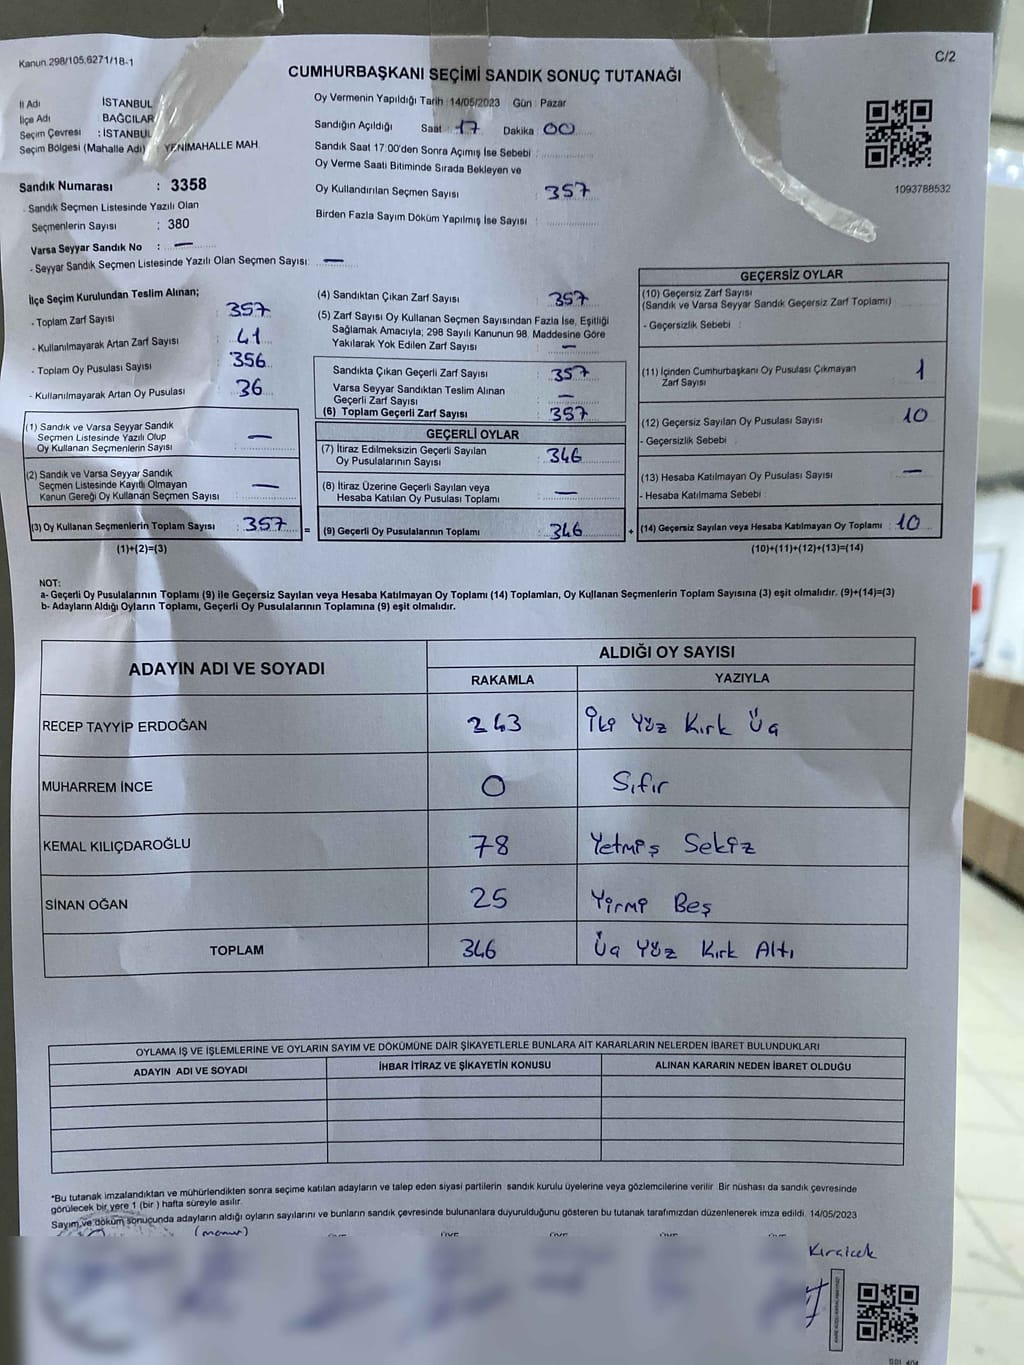 Kanun 298/105,6271/18-1
C/2
CUMHURBAŞKANI SEÇİMİ SANDIK SONUÇ TUTANAĞI
İl Adı İSTANBUL
İlçe Adı BAĞCILAR
Seçim Çevresi : İSTANBUL
Seçim Bölgesi (Mahalle Adı) : YENİMAHALLE MAH
Sandık Numarası : 3358
- Sandık Seçmen Listesinde Yazılı Olan
Seçmenlerin Sayısı : 380
Varsa Seyyar Sandık No : —
- Seyyar Sandık Seçmen Listesinde Yazılı Olan Seçmen Sayısı: —
Oy Vermenin Yapıldığı Tarih : 14/05/2023 Gün : Pazar
Sandığın Açıldığı Saat 17 Dakika 00
Sandık Saat 17:00'den Sonra Açımış İse Sebebi :
Oy Verme Saati Bitiminde Sırada Bekleyen ve
Oy Kullandırılan Seçmen Sayısı : 357
Birden Fazla Sayım Döküm Yapılmış İse Sayısı :
1093788532
İlçe Seçim Kurulundan Teslim Alınan;
- Toplam Zarf Sayısı : 357
- Kullanılmayarak Artan Zarf Sayısı : 41
- Toplam Oy Pusulası Sayısı : 356
- Kullanılmayarak Artan Oy Pusulası : 36
(1) Sandık ve Varsa Seyyar Sandık
Seçmen Listesinde Yazılı Olup
Oy Kullanan Seçmenlerin Sayısı : —
(2) Sandık ve Varsa Seyyar Sandık
Seçmen Listesinde Kayıtlı Olmayan
Kanun Gereği Oy Kullanan Seçmen Sayısı : —
(3) Oy Kullanan Seçmenlerin Toplam Sayısı : 357 =
(1)+(2)=(3)
(4) Sandıktan Çıkan Zarf Sayısı : 357
(5) Zarf Sayısı Oy Kullanan Seçmen Sayısından Fazla İse, Eşitliği
Sağlamak Amacıyla; 298 Sayılı Kanunun 98. Maddesine Göre
Yakılarak Yok Edilen Zarf Sayısı : —
Sandıkta Çıkan Geçerli Zarf Sayısı : 357
Varsa Seyyar Sandıktan Teslim Alınan
Geçerli Zarf Sayısı : —
(6) Toplam Geçerli Zarf Sayısı : 357
GEÇERLİ OYLAR
(7) İtiraz Edilmeksizin Geçerli Sayılan
Oy Pusulalarının Sayısı : 346
(8) İtiraz Üzerine Geçerli Sayılan veya
Hesaba Katılan Oy Pusulası Toplamı : —
(9) Geçerli Oy Pusulalarının Toplamı : 346 +
GEÇERSİZ OYLAR
(10) Geçersiz Zarf Sayısı
(Sandık ve Varsa Seyyar Sandık Geçersiz Zarf Toplamı)
- Geçersizlik Sebebi :
(11) İçinden Cumhurbaşkanı Oy Pusulası Çıkmayan
Zarf Sayısı : 1
(12) Geçersiz Sayılan Oy Pusulası Sayısı : 10
- Geçersizlik Sebebi :
(13) Hesaba Katılmayan Oy Pusulası Sayısı : —
- Hesaba Katılmama Sebebi :
(14) Geçersiz Sayılan veya Hesaba Katılmayan Oy Toplamı : 10
(10)+(11)+(12)+(13)=(14)
NOT:
a- Geçerli Oy Pusulalarının Toplamı (9) ile Geçersiz Sayılan veya Hesaba Katılmayan Oy Toplamı (14) Toplamları, Oy Kullanan Seçmenlerin Toplam Sayısına (3) eşit olmalıdır. (9)+(14)=(3)
b- Adayların Aldığı Oyların Toplamı, Geçerli Oy Pusulalarının Toplamına (9) eşit olmalıdır.
ADAYIN ADI VE SOYADI ALDIĞI OY SAYISI
RAKAMLA YAZIYLA
RECEP TAYYİP ERDOĞAN 243 İki Yüz Kırk Üç
MUHARREM İNCE 0 Sıfır
KEMAL KILIÇDAROĞLU 78 Yetmiş Sekiz
SİNAN OĞAN 25 Yirmi Beş
TOPLAM 346 Üç Yüz Kırk Altı
OYLAMA İŞ VE İŞLEMLERİNE VE OYLARIN SAYIM VE DÖKÜMÜNE DAİR ŞİKAYETLERLE BUNLARA AİT KARARLARIN NELERDEN İBARET BULUNDUKLARI
ADAYIN ADI VE SOYADI İHBAR İTİRAZ VE ŞİKAYETİN KONUSU ALINAN KARARIN NEDEN İBARET OLDUĞU
*Bu tutanak imzalandıktan ve mühürlendikten sonra seçime katılan adayların ve talep eden siyasi partilerin sandık kurulu üyelerine veya gözlemcilerine verilir. Bir nüshası da sandık çevresinde
görülecek bir yere 1 (bir ) hafta süreyle asılır.
Sayım ve döküm sonucunda adayların aldığı oyların sayılarını ve bunların sandık çevresinde bulunanlara duyurulduğunu gösteren bu tutanak tarafımızdan düzenlenerek imza edildi. 14/05/2023
(memur)